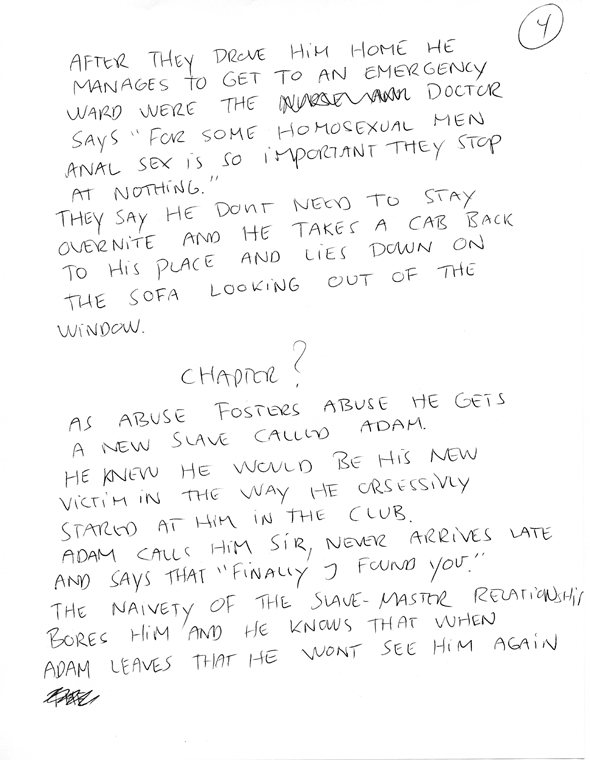 4
AFTER THEY DROVE HiM HOME HE
MANAGES TO GET TO AN EMERGENCY
WARD WERE THE DOCTOR
SAYS "FOR SOME HOMOSEXUAL MEN
ANAL SEX iS SO iMPORTANT THEY STOP
AT NOTHiNG."
THEY SAY HE DONT NEED TO STAY
OVERNiTE AND HE TAKES A CAB BACK
TO HiS PLACE AND LiES DOWN ON
THE SOFA LOOKiNG OUT OF THE
WiNDOW.
CHAPTER ?
AS ABUSE FOSTERS ABUSE HE GETS
A NEW SLAVE CALLED ADAM.
HE KNEW HE WOULD BE HiS NEW
ViCTiM iN THE WAY HE OBSESSiVLY
STARED AT HiM iN THE CLUB.
ADAM CALLS HiM SiR, NEVER ARRiVES LATE
AND SAYS THAT "FiNALLY J FOUND YOU."
THE NAiVETY OF THE SLAVE-MASTER RELATiONSHiP
BORES HiM AND HE KNOWS THAT WHEN
ADAM LEAVES THAT HE WONT SEE HiM AGAiN